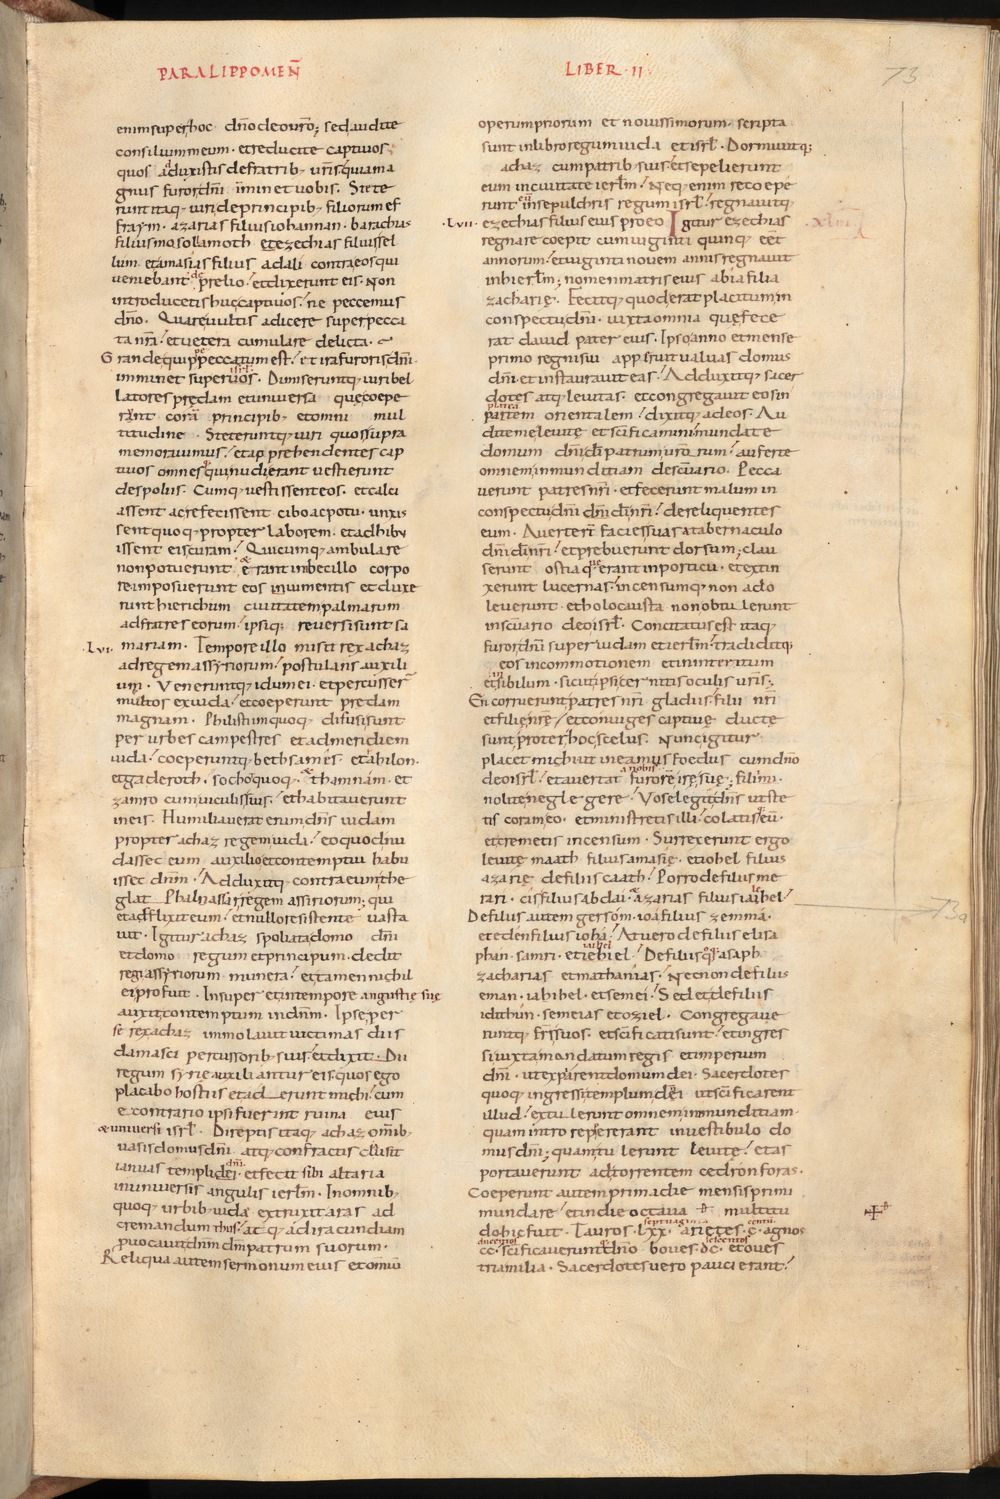 PARALIPPOMEÑ
LIBER · II ·
73
enim super hoc dño deo uřo; sed audite
consilium meum · et reducite captiuos
quos adduxistis de fratrib; uřis quia ma
gnus furor dñi iminet uobis. Stete
runt itaq; uiri de principib; filiorum ef
fraym · azarias filius iohannan · barachias
filius mosollamoth et ezechias filius sel
lum · et amasias filius adali contra eos qui
ueniebant de prelio / et dixerunt eis. Non
introducetis huc captiuos / ne peccemus
dño. Quare uultis adicere super pecca
ta nřa / et uetera cumulare delicta.
Grande quippe peccatum est / et ira furoris dñi
imminet super isrł. Dimiseruntq; uiri bel
latores predam et universa que coepe
rant corã principib; et omni mul
titudine. Steteruntq; uiri quos supra
memorauimus / et apprehendentes cap
tiuos omnesq; qui nudi erant uestierunt
de spoliis. Cumq; uestissent eos · et calci
assent ac refecissent cibo ac potu · unxis
sentquoq; propter laborem · et adhibu
issent eis curam / Quicumq; ambulare
non poterunt & erant inbecillo corpo
re imposuerunt eos iumentis et duxe
runt hierichum ciuitatem palmarum
ad fratres eorum / ipsiq; reuersi sunt sa
· Lvi · mariam · Tempore illo misit rex achaz
ad regem assyriorum / postulans auxili
um · Veneruntq; idumei · et percusser
multos ex iuda / et coeperunt predam
magnam · Philistiimquoq; difusi sunt
per urbes campestres et ad meridiem
iuda / coeperuntq; bethsames et ahilon ·
et gaderoth, sochoquoq; & thamnam · et
zamro cum uiculis suis / et habitauerunt
in eis. Humiliauerat enim dñs iudam
propter achaz regem iuda / eo quod nu
dasset eum auxilio et contemptui habu
isset dñm / Adduxitq; contra eum the
glat Phalnassar regem assiriorum / qui
et adflixit eum / et nullo resistente uasta
uit · Igitur achaz spoliata domo dñi
et domo regum et principum · dedit
regi assyriorum munera / et tamen nichil
ei profuit · Insuper et in tempore angustie sue
auxit contemptum in dñm · Ipse per
se rex achaz immolauit uictimas diis
damasci percussorib; suis / et dixit · Dii
regum syrie auxiliantur eis · quos ego
placabo hostiis et aderunt michi / cum
e contrario ipsi fuerint ruina eius
& uniuersi isrł · Direptis itaq; achaz omĩb;
uasis domus dñi atq; confractis clusit
ianuas templi dei · et fecit sibi altaria
in uniuersis angulis ierłm · In omnib;
quoq; urbib; iuda extruxit aras ad
cremandum thus / atq; ad iracundiam
prouocauit dñm dm patrum suorum ·
Reliqua autem sermonum eius et omnium
operum priorum et nouissimorum · scripta
sunt in libro regum iuda et isrł · Dormiuitq;
achaz cum patrib; suis / et sepelierunt
eum in ciuitate ierłm / Neq; enim recoepe
runt eum in sepulchris regum isrł / regnauitq;
· Lvii · ezechias filius eius pro eo Igitur ezechias
regnare coepit cum uiginti quinq; eet
annorum / et uiginti nouem annis regnauit
in hierłm; nomen matris eius abia filia
zacharie · Fecitq; quod erat placitum in
conspectu dñi · iuxta omnia que fece
rat dauid pater eius. Ipso anno et mense
primo regni sui apperuit ualuas domus
dñi · et instaurauit eas / Adduxitq; sacer
dotes atq; leuitas · et congregauit eos in
platea
partem orientalem / dixitq; ad eos · Au
dite me leuite et scificamini mundate
domum dñi di patrum uřorum / auferte
omnem inmunditiam de scuario. Pecca
uerunt patres nři · et fecerunt malum in
conspectu dñi di nři / derelinquentes
eum · Auerterť facies suas a tabernaculo
dñi di nři / et prebuerunt dorsum; clau
serunt ostia que erant in porticu · et extin
xerunt lucernas / incensumq; non ado
leuerunt · et holocausta non obtulerunt
in scuario deo isrł · Concitatus est itaq;
furor dñi super iudam et ierłm / tradiditq;
eos in commotionem et in interitum
et in sibilum · sicut ipsi cernitis oculis uřis;
En corruerunt patres nři gladiis / filii nři
et filie nře / et coniuges captiue ducte
sunt propter hoc scelus. Nunc igitur
placet michi ut ineamus foedus cum dño
deo isrł / et auertat a nobis furore ire sue; filii mi ·
nolite neglegere / Vos elegit dñs ut ste
tis coram eo · et ministretis illi / colatis eũ ·
et cremetis incensum · Surrexerunt ergo
leuite maath filius amasie · et iohel filius
azarie de filiis caath / Porro de filiis me
rari · cis filius abdai · & azarias filius ialohel /
De filiis autem gersom · ioa filius zemma ·
et eden filius ioha / At uero de filiis elisa
phan · samri · et iehiel / De filiis quoq; asaph
zacharias et mathanias / Necnon de filiis
eman · iahihel · et semei / Sed et de filiis
idithun · semeias et oziel · Congregaue
runtq; frĩs suos · et scificati sunt / et ingres
si iuxta mandatum regis et imperium
dñi · ut expiarent domum dei · Sacerdotes
quoq; ingressi templum dei ut scificarent
illud / extulerunt omnem inmunditiam ·
quam intro reppererant in uestibulo do
mus dñi; quam tulerunt leuite / et as
portauerunt ad torrentem cedron foras ·
Coeperunt autem prima die mensis primi
mundare et in die octaua multitu
dohic fuit · Tauros · lxx · arietes · c · agnos
cc · scificauerunt dño boues · dc · et oues
tria milia · Sacerdotes uero pauci erant /
73a